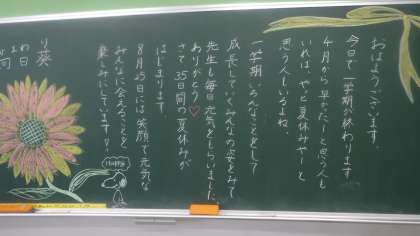 おはようございます。
今日で一学期が終わります。
4月から早かったーと思う人も
いれば、やっと夏休みやーと
思う人もいるよね。
一学期いろんなことをして
成長していくみんなの姿をみて
先生も毎日元気をもらいました。
ありがとう♡
さて35日間の夏休みが
はじまります。
8月25日には、笑顔で元気な
みんなに会えることを
楽しみにしています!!
り葵